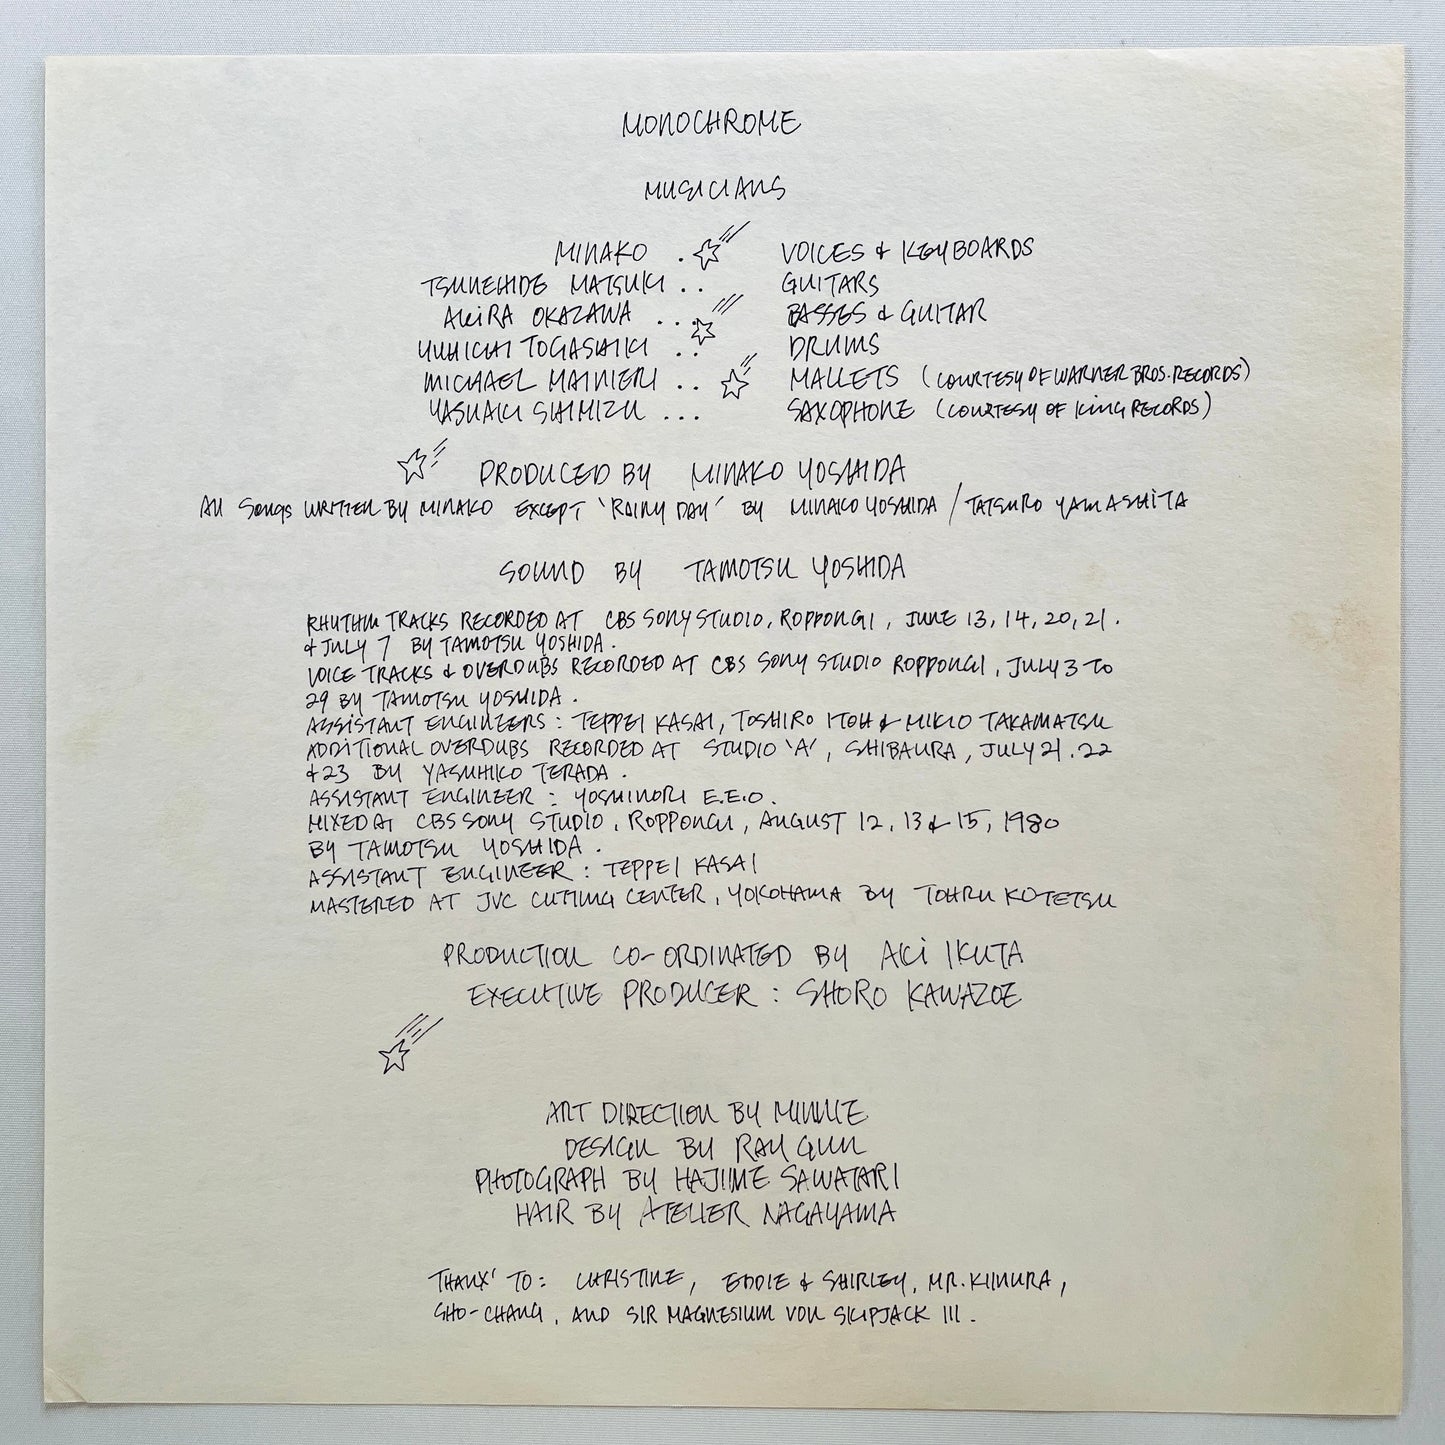 MONOCHROME
MUSICIANS
MINAKO . VOICES & KEYBOARDS
TSUNEHIDE MATSUKI . . GUITARS
AKiRA OKAZAWA . . . BASSES & GUITAR
YUHICHI TOGASHIKI . . DRUMS
MICHAEL MAINIERI . . MALLETS (COURTESY OF WARNER BROS. RECORDS)
YASUAKI SHIMIZU . . . SAXOPHONE (COURTESY OF KING RECORDS)
PRODUCED BY MINAKO YOSHIDA
All Songs WRITTEN BY MINAKO EXCEPT 'RAINY DAY' BY MINAKO YOSHIDA / TATSURO YAMASHiTA
SOUND BY TAMOTSU YOSHIDA
RHYTHM TRACKS RECORDED AT CBS SONY STUDIO, ROPPONGI, JUNE 13, 14, 20, 21.
& JULY 7 BY TAMOTSU YOSHIDA.
VOICE TRACKS & OVERDUBS RECORDED AT CBS SONY STUDIO ROPPONGI, JULY 3 TO
29 BY TAMOTSU YOSHIDA.
ASSiSTANT ENGINEERS : TEPPEI KASAI, TOSHIRO ITOH & MIKIO TAKAMATSU
ADDiTIONAL OVERDUBS RECORDED AT STUDIO 'A', SHIBAURA, JULY 21. 22
& 23 BY YASUHIKO TERADA.
ASSISTANT ENGINEER : YOSHINORI E.E.O.
MIXED AT CBS SONY STUDIO, ROPPONGI, AUGUST 12, 13 & 15, 1980
BY TAMOTSU YOSHIDA.
ASSISTANT ENGINEER : TEPPEI KASAI
MASTERED AT JVC CUTTING CENTER, YOKOHAMA BY TOHRU KOTETSU
PRODUCTION CO-ORDINATED BY AKi IKUTA
EXECUTIVE PRODUCER : SHORO KAWAZOE
ART DIRECTION BY MINNIE
DESIGN BY RAY GUN
PHOTOGRAPH BY HAJIME SAWATARI
HAIR BY ATELIER NAGAYAMA
THANX' TO : CHRISTINE, EDDIE & SHIRLEY, MR. KIMURA,
SHO-CHANG, AND SIR MAGNESIUM VON SKIPJACK III.